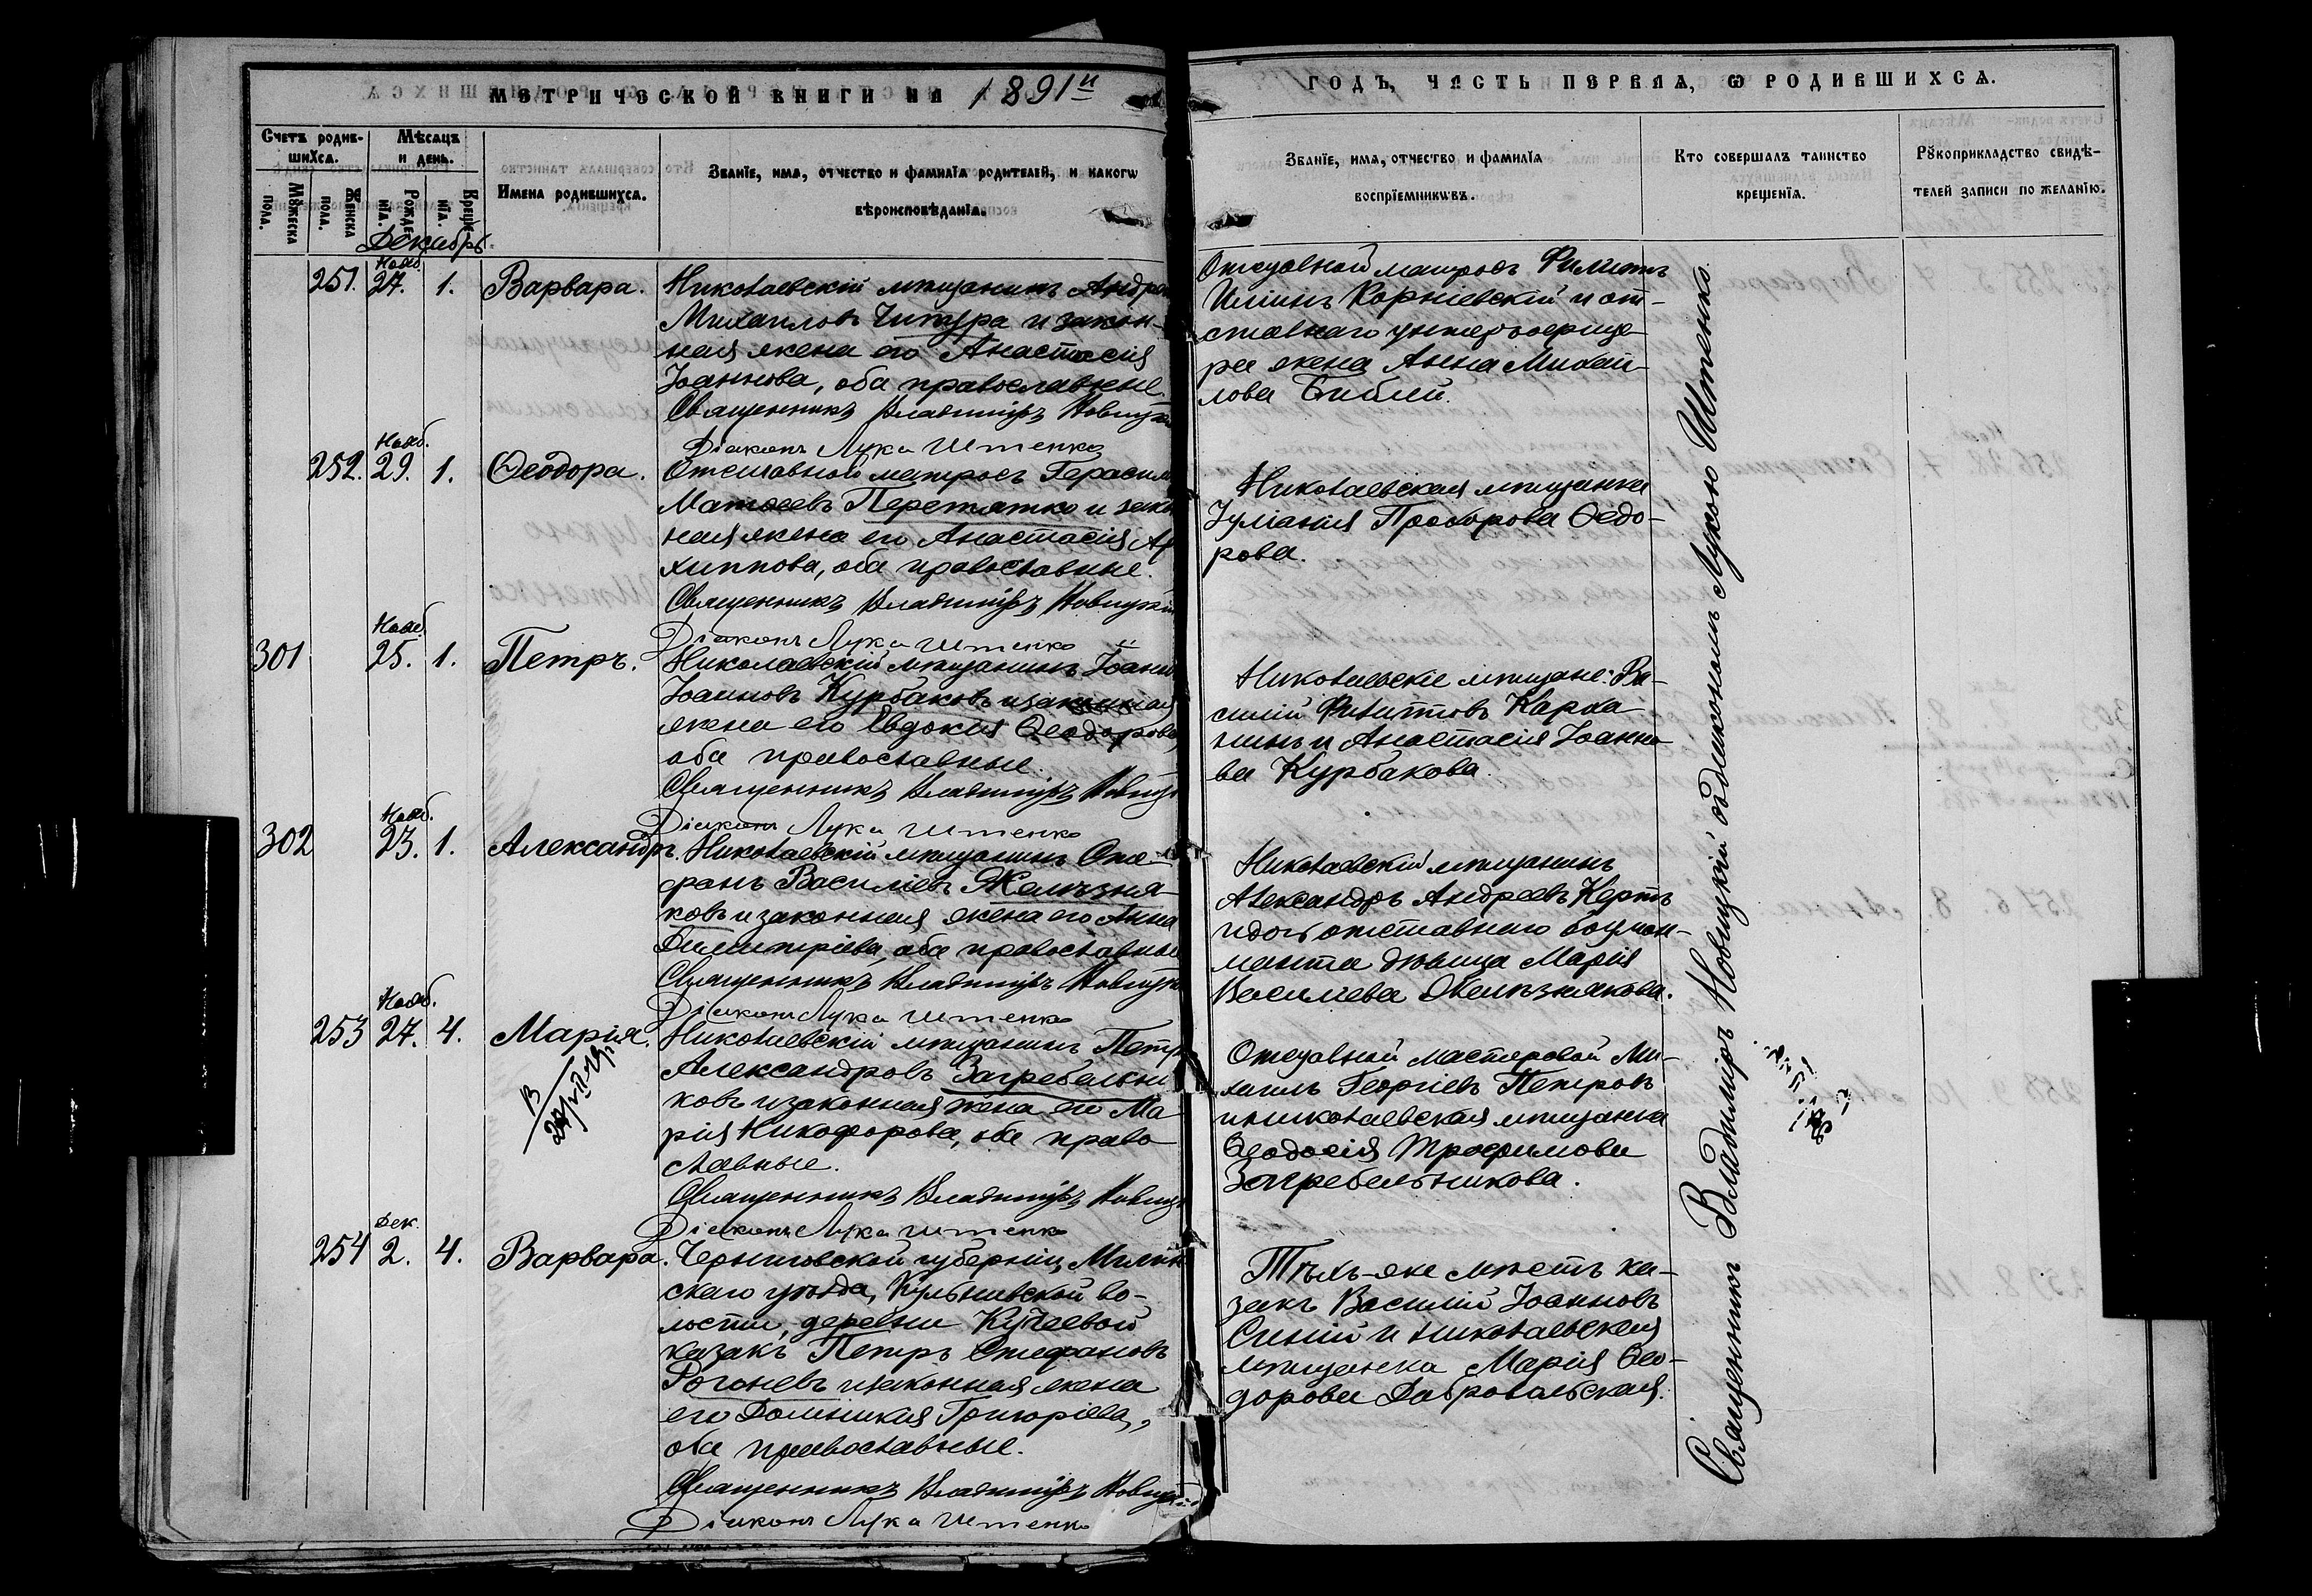 МЕТРИЧЕСКОЙ КНИГИ НА 1891й
ГОДЪ, ЧАСТЬ ПЕРВАЯ, Ѡ РОДИВШИХСѦ.
Счетъ родив-
шихсѧ.
Мѣсѧцъ
и день.
Мꙋжеска пола.
Женска пола.
Рожденїѧ.
Крещенїѧ.
Имена родившихсѧ.
Званїе, имѧ, отчество и фамилїѧ родителей, и какогѡ
вѣроисповѣданїѧ.
Званїе, имѧ, отчество и фамилїѧ
воспрїемникѡвъ.
Кто совершалъ таинство
крещенїѧ.
Рꙋкоприкладство свидѣ-
телей записи по желанїю.
Декабрь.
251. Нояб. 27. 1. Варвара.
Николаевскій мѣщанинъ Андрей
Михаиловъ Читура и закон-
ная жена его Анастасія
Іоаннова, оба православные.
Священникъ Владиміръ Новицкій
Діаконъ Лука Иштенко
Отставной матросъ Филиппъ
Иліинъ Корніевскій и от-
ставнаго унтеръ офице-
ра жена Анна Михаи-
лова Бибий.
252. Нояб. 29. 1. Ѳеодора.
Отставной матросъ Герасимъ
Матѳеевъ Перетятко и закон
ная жена его Анастасія Ар
хиппова, оба православные.
Священникъ Владиміръ Новицкій
Діаконъ Лука Иштенко
Николаевская мѣщанка
Іуліанія Прохорова Ѳедо-
рова.
301 Нояб. 25. 1. Петръ.
Николаевскій мѣщанинъ Іоаннъ
Іоанновъ Курбаковъ и законная
жена его Евдокія Ѳеодорова,
оба православные.
Священникъ Владиміръ Новицкій
Діаконъ Лука Иштенко
Николаевскіе мѣщане: Ва-
силій Филипповъ Карха
нинъ и Анастасія Іоанно
ва Курбакова.
302 Нояб. 23. 1. Александръ.
Николаевскій мѣщанинъ Сте-
фанъ Василіевъ Желѣзня-
ковъ и законная жена его Анна
Димитріева, оба православные
Священникъ Владиміръ Новицкій
Діаконъ Лука Иштенко
Николаевскій мѣщанинъ
Александръ Андреевъ Кертъ
и дочь отставнаго боцман-
манта дѣвица Марія
Василіева Желѣзнякова.
253 Нояб. 27. 4. Марія.
Николаевскій мѣщанинъ Петръ
Александровъ Загребельни
ковъ и законная жена его Ма
рія Никифорова, оба право
славные.
Священникъ Владиміръ Новицкій
Діаконъ Лука Иштенко
Отставной мастеровой Ми-
хаилъ Георгіевъ Петровъ
и николаевская мѣщанка
Ѳеодосія Трофимова
Загребельникова.
254 Дек. 2. 4. Варвара.
Черниговской губерніи, Мглин
скаго уѣзда, Кульневской во-
лости, деревни Кучеевой
казакъ Петръ Стефановъ
Рогоневъ и законная жена
его Домникія Григоріева,
оба православные.
Священникъ Владиміръ Новицкій
Діаконъ Лука Иштенко
Тѣхъ-же мѣстъ ка-
закъ Василій Іоанновъ
Синій и николаевская
мѣщанка Марія Ѳео-
дорова Добровольская.
Священникъ Владиміръ Новицкій съ діакономъ Лукою Иштенко.